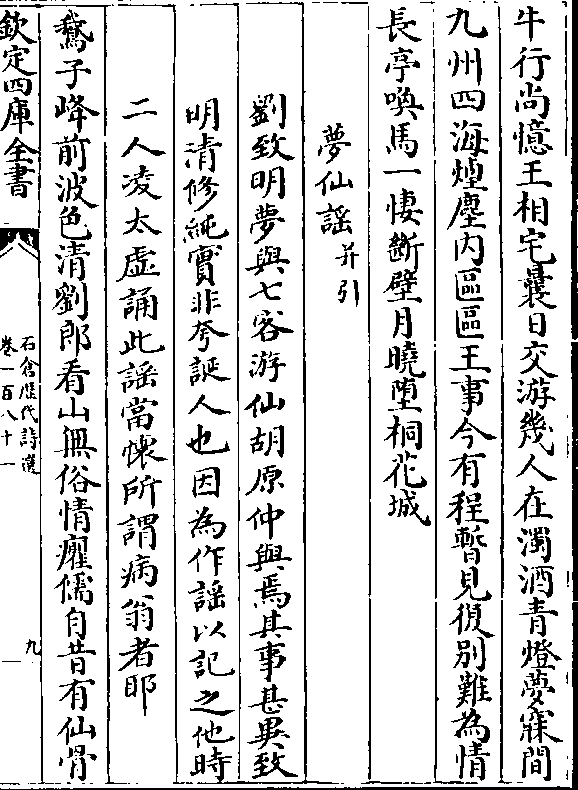 牛行尚憶王相宅曩日交游幾人在濁酒青燈夢寐間
九州四海煙塵内區區王事今有程暫見復別難為情
長亭喚馬一悽斷壁月曉墮桐花城
夢仙謡并引
劉致明夢與七客游仙胡原仲與焉其事甚異致
明清修純實非夸誕人也因為作謡以記之他時
二人凌太虚誦此謡當懐所謂病翁者耶
鵞子峰前波色清劉郎看山無俗情癯儒自昔有仙骨
欽定四庫全書
石倉歴代詩選
卷一百八十一
九